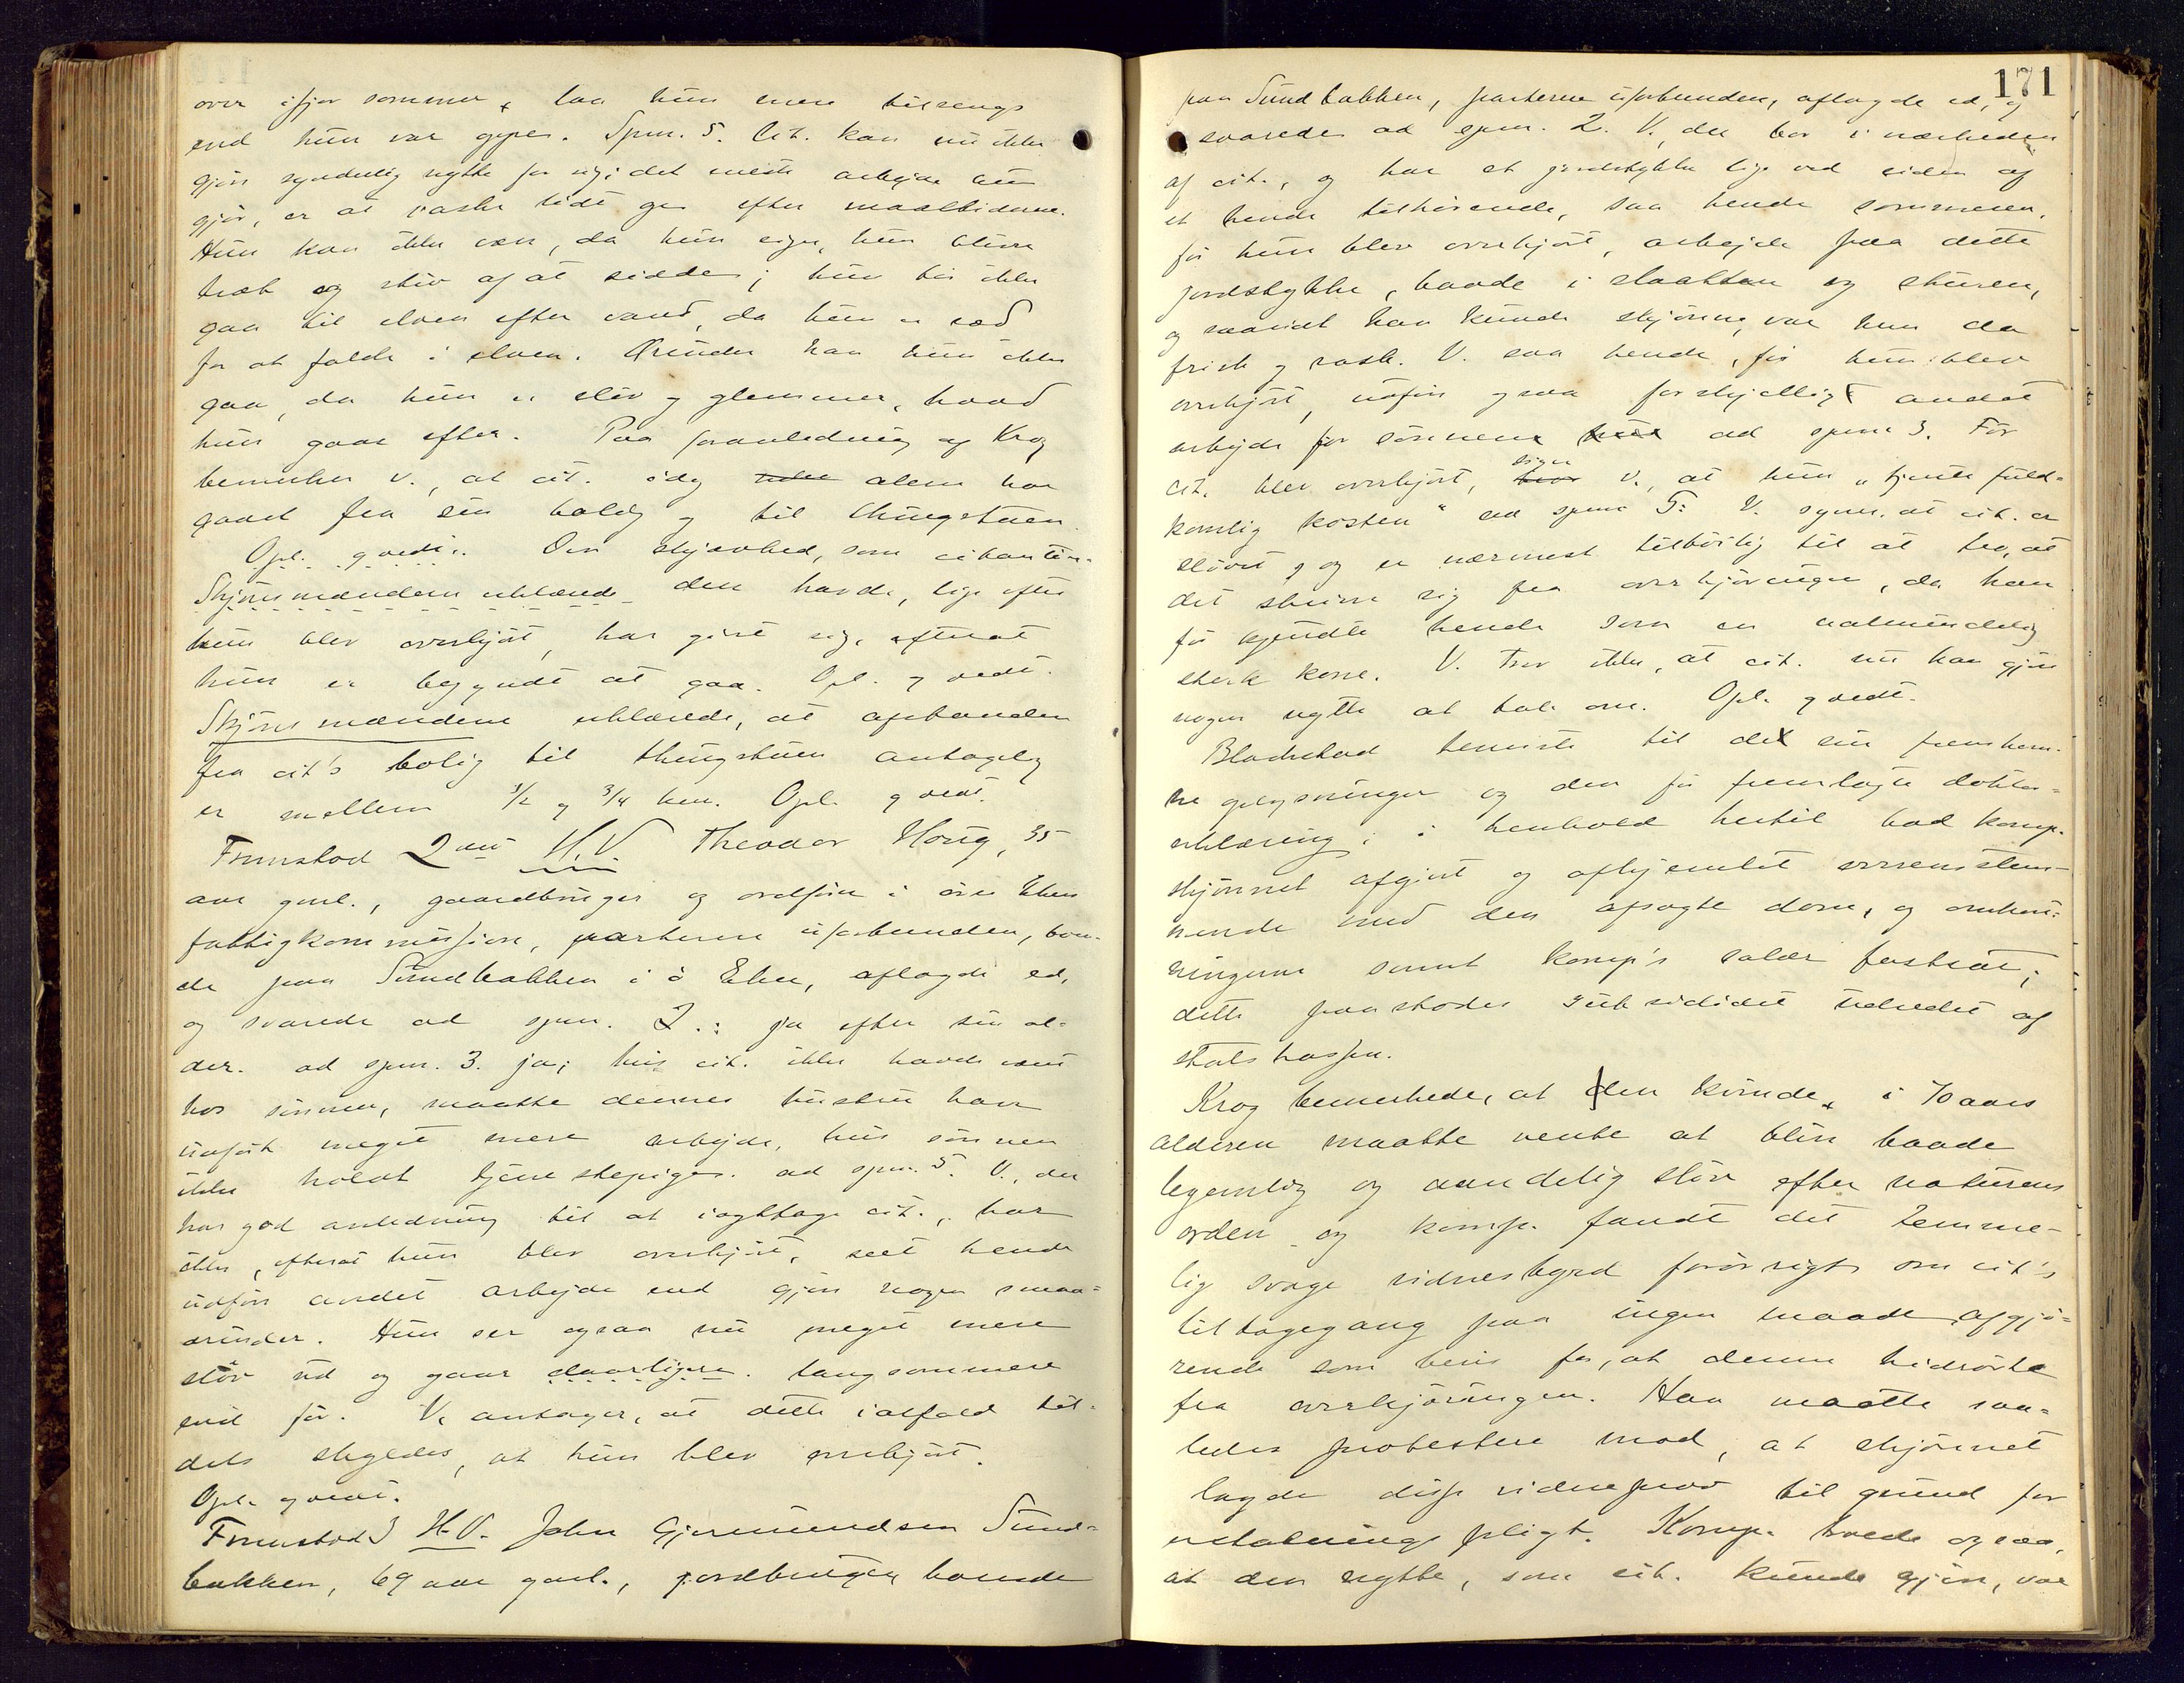 over ifjor sommer, laa hun mere tilsengs
end hun var oppe. Spm. 5. Cit. kan nu ikke
gjøre synderlig nytte for sig; det meste arbejde hun
gjør, er at vaske lidt op efter maaltiderne.
Hun kan ikke væve, da hun siger, hun bliver
træt og stiv af at sidde; hun tør ikke
gaa til elven efter vand, da hun er ræd
for at falde i elven. Ærinder kan hun ikke
gaa, da hun er sløv og glemmer, hvad
hun gaar efter. Paa foranledning af Krog
bemerker v., at cit. idag alene har
gaaet fra sin bolig og til thingstuen.
Opl. og vedt. Den skjævhed, som citantin-
Skjønsmændene erklærede den havde, lige efter
hun blev overkjørt, har givet sig, efterat
hun er begyndt at gaa. Opl. og vedt.
Skjønsmændene erklærede, at afstanden
fra cit's bolig til thingstuen antagelig
er mellem 1/2 og 3/4 km. Opl. og vedt.
Fremstod 2det H.V. Theodor Houg, 35
aar gml., gaardbruger og ordfører i øvre Eker
fattigkommission, parterne uforbunden, bon-
de paa Sundbakken i ø Eker, aflagde ed,
og svarede ad spm. 2.: ja efter sin al-
der. ad spm. 3. ja; hvis cit. ikke havde været
hos sønnen, maatte dennes hustru have
udført meget mere arbejde, hvis sønnen
ikke holdt tjenestepige. ad spm. 5. V., der
har god anledning til at iagttage cit., har
ikke, efterat hun blev overkjørt, seet hende
udføre andet arbejde end gjøre nogen smaa-
ærinder. Hun ser ogsaa nu meget mere
sløv ud og gaar daarligere. langsommere
end før. V. antager, at dette ialfald til-
dels skyldes, at hun blev overkjørt.
Opl. og vedt.
Fremstod 3 H.V. John Gjermundsen Sund-
bakken, 69 aar gml., jordbruger, boende
171
paa Sundbakken, parterne uforbunden, aflagde ed, og
svarede ad spm. 2. V., der bor i nærheden
af cit., og har et jordstykke lige ved siden af
et hende tilhørende, saa hende sommeren,
før hun blev overkjørt, arbejde paa dette
jordstykke, baade i slaatten og skuren,
og saavidt han kunde skjønne, var hun da
frisk og rask. V. saa hende, før hun blev
overkjørt, udføre ogsaa forskjelligt andet
arbejde for sønnen ad spm 3. Før
cit. blev overkjørt, siger v., at hun "tjente fuld-
komlig kosten" ad spm 5: V. synes, at cit. er
sløvet, og er nærmest tilbøielig til at tro, at
det skriver sig fra overkjøringen, da han
før kjendte hende som en ualmindelig
sterk kone. V. tror ikke, at cit. nu kan gjøre
nogen nytte at tale om. Opl. og vedt.
Blackstad henviste til de nu fremkom-
ne oplysninger og den før fremlagte doktor-
erklæring; i henhold hertil bad komp.
skjønnet afgivet og afhjemlet overensstem-
mende med den afsagte dom, og omkost-
ningerne samt komp's salær fastsat;
dette paastodes subsidiært udredet af
statskassen.
Krog bemerkede, at en kvinde, i 70 aars
alderen maatte vente at blive baade
legemlig og aandelig sløv efter naturens
orden og komp. fandt det temme-
lig svage vidnesbyrd forøvrigt om cit's
tilbagegang paa ingen maade afgjø-
rende som bevis for, at denne hidrørte
fra overkjøringen. Han maatte saa-
ledes protestere mod, at skjønnet
lagde disse vidneprov til grund for
erstatningspligt. Komp. troede ogsaa,
at den nytte, som cit. kunde gjøre, var